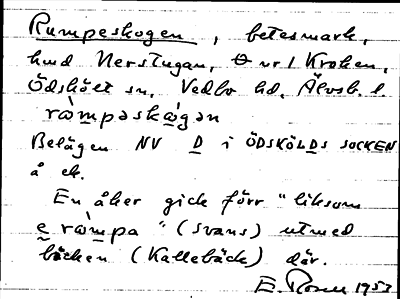 Rumpeskogen, betesmark,
hmd Nerstugan, O nr 1 Kroken,
Ödskölt sn, Vedbo hd, Älvsb. l.
ràm̲pəskò̲gən
Belägen NV D̲ i ÖDSKÖLDS SOCKEN
å ek.
En åker gick förr "liksom
e̲ ràm̲pa" (svans) utmed
bäcken (Kallebäck) där.
E. Rosell 1953